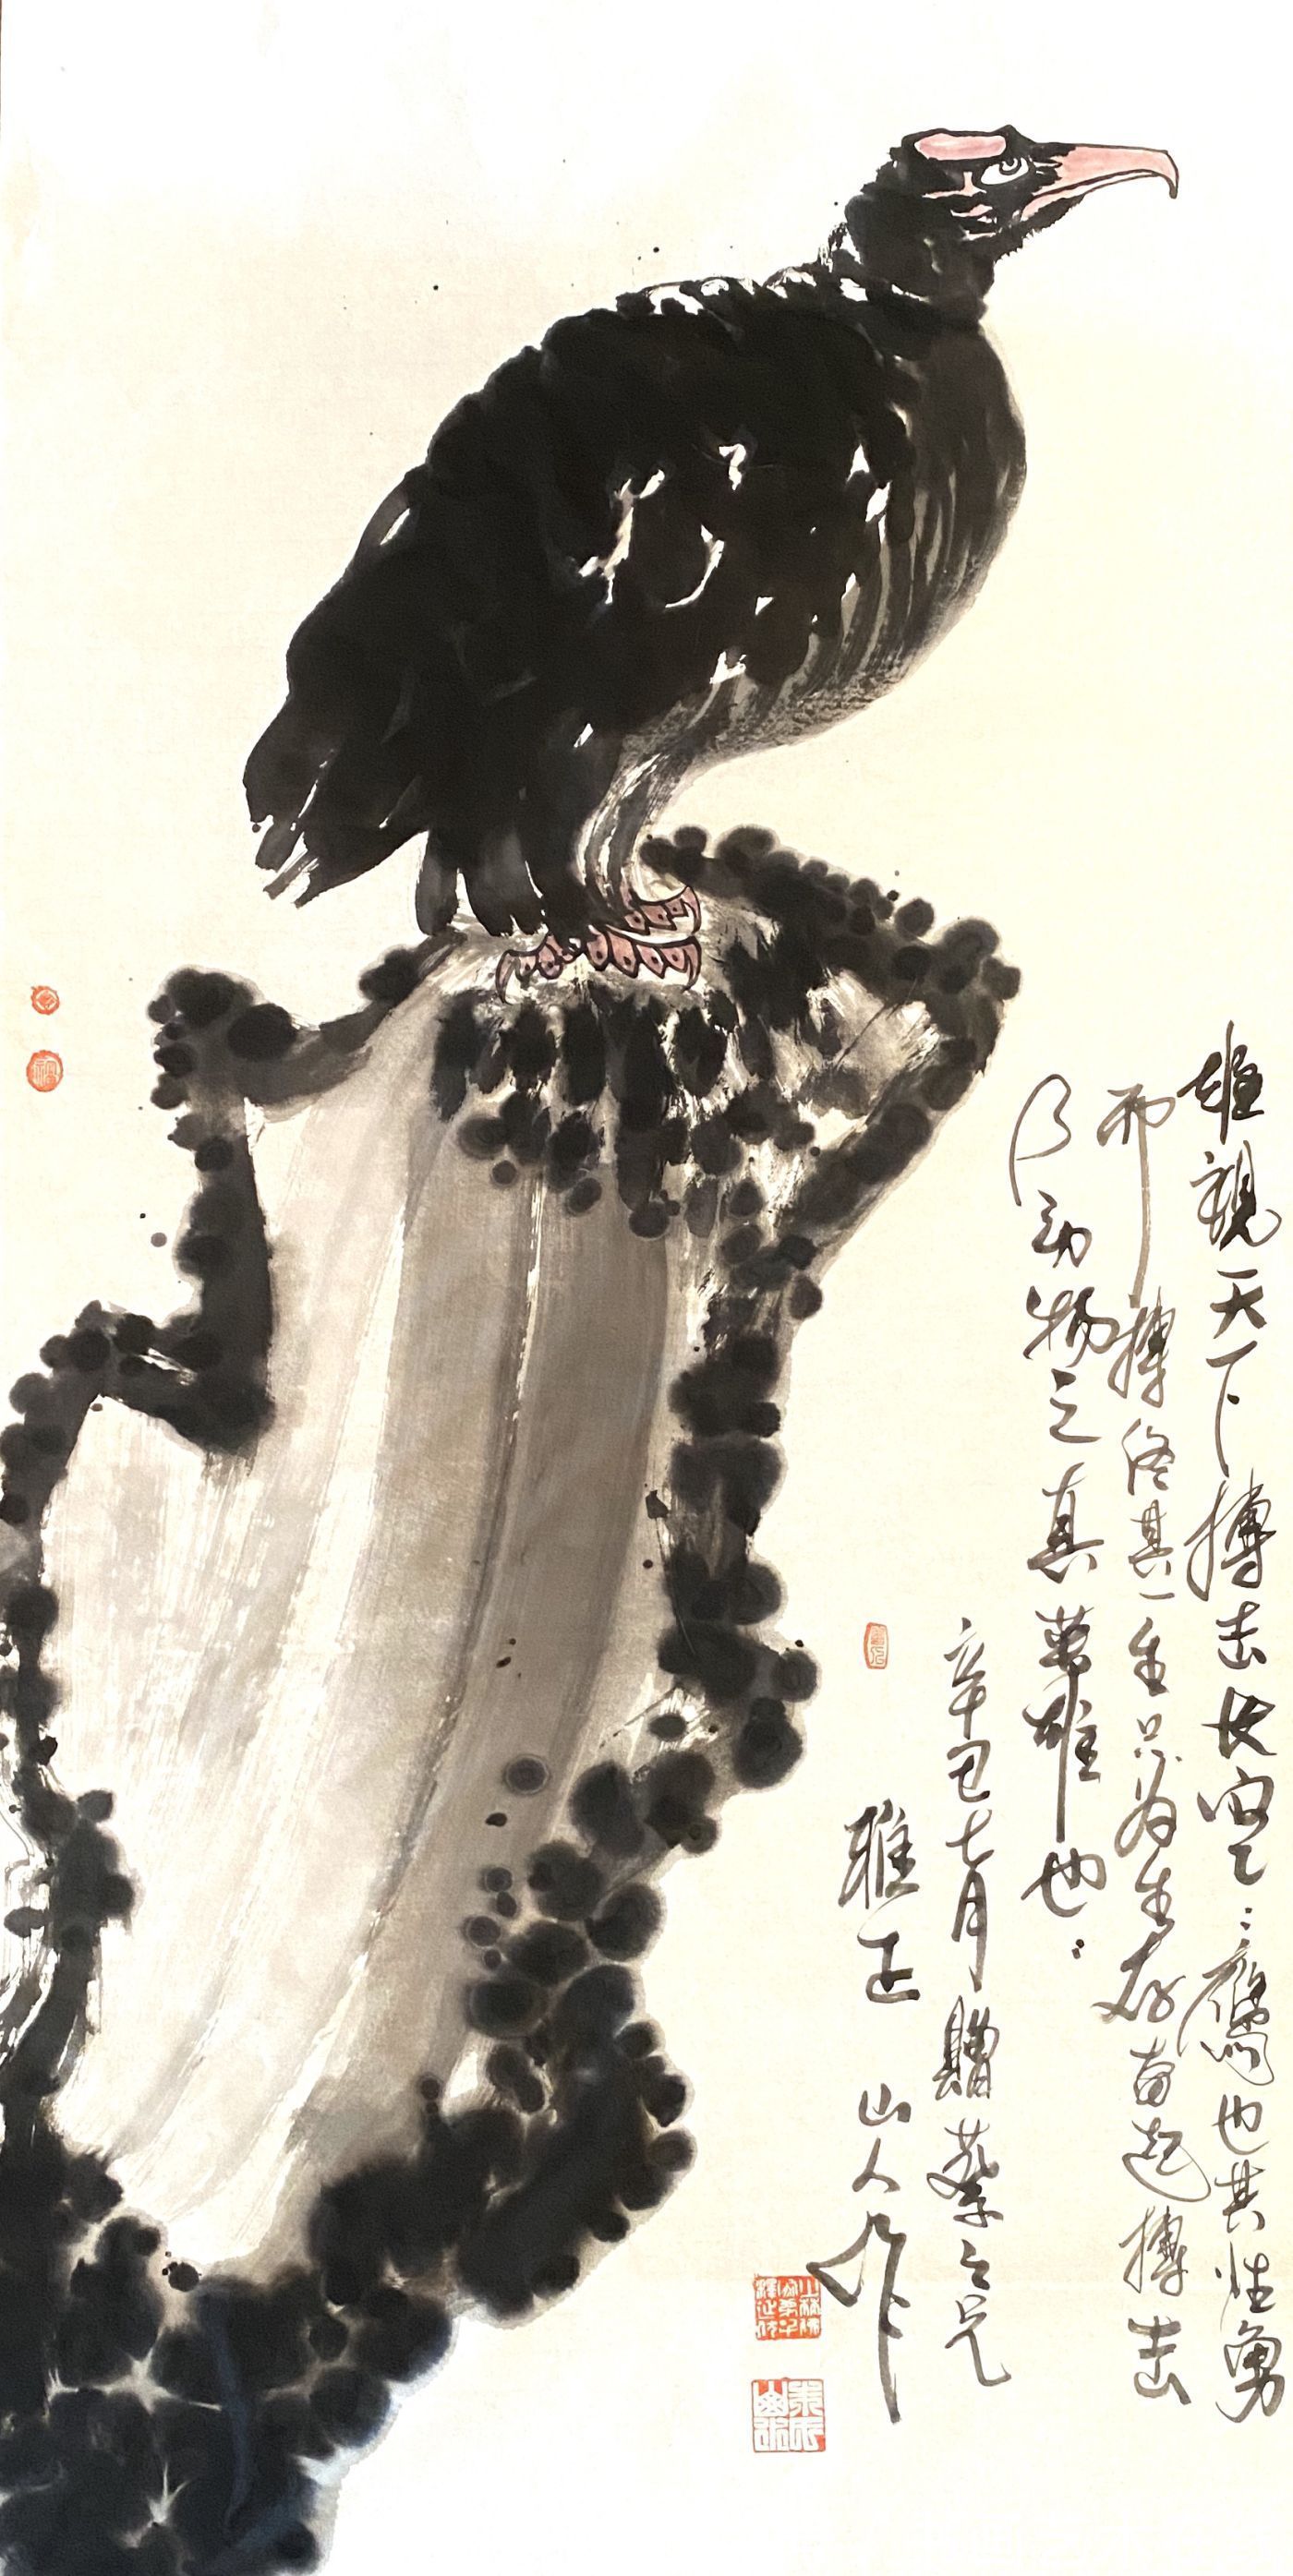 雄視天下搏击长空:鹰也其性勇
而搏终其一生只为生存奋起搏击
乃动物之真英雄也:
辛丑七月赠蔡公兄
雅正 山人作